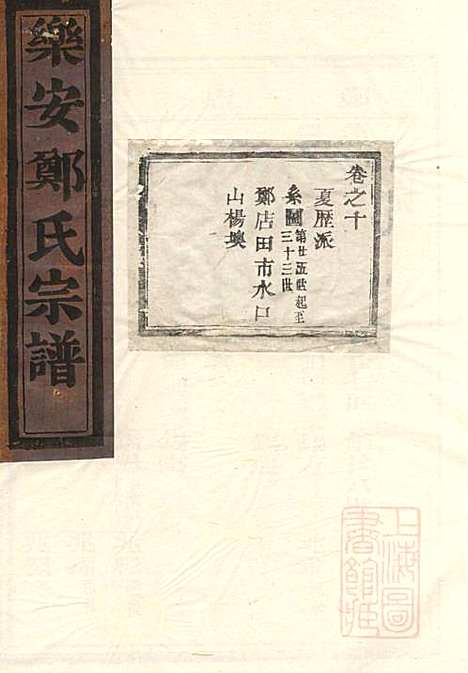 樂安鄭氏宗譜
卷之十
夏歷派
系圖第廿五世起至三十三世
鄭店田市水口
山楊墺
上海圖
書館藏